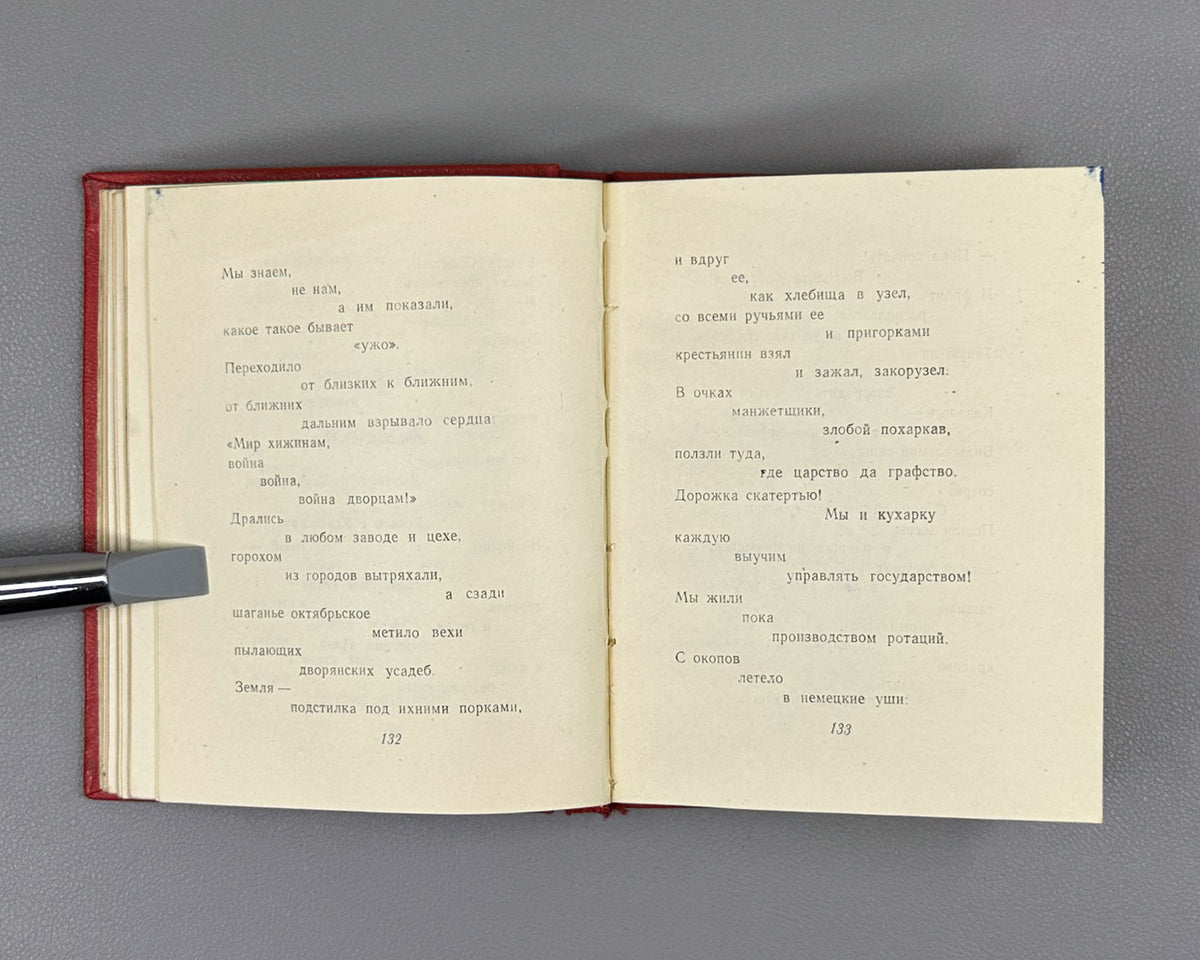 Мы знаем,
не нам,
а им показали,
какое такое бывает
«ужо».
Переходило
от близких к ближним,
от ближних
дальним взрывало сердца:
«Мир хижинам,
война
война,
война дворцам!»
Дрались
в любом заводе и цехе,
горохом
из городов вытряхали,
а сзади
шаганье октябрьское
метило вехи
пылающих
дворянских усадеб.
Земля —
подстилка под ихними порками,
132
и вдруг
ее,
как хлебища в узел,
со всеми ручьями ее
и пригорками
крестьянин взял
и зажал, закорузел.
В очках
манжетщики,
злобой похаркав,
ползли туда,
где царство да графство.
Дорожка скатертью!
Мы и кухарку
каждую
выучим
управлять государством!
Мы жили
пока
производством ротаций.
С окопов
летело
в немецкие уши:
133